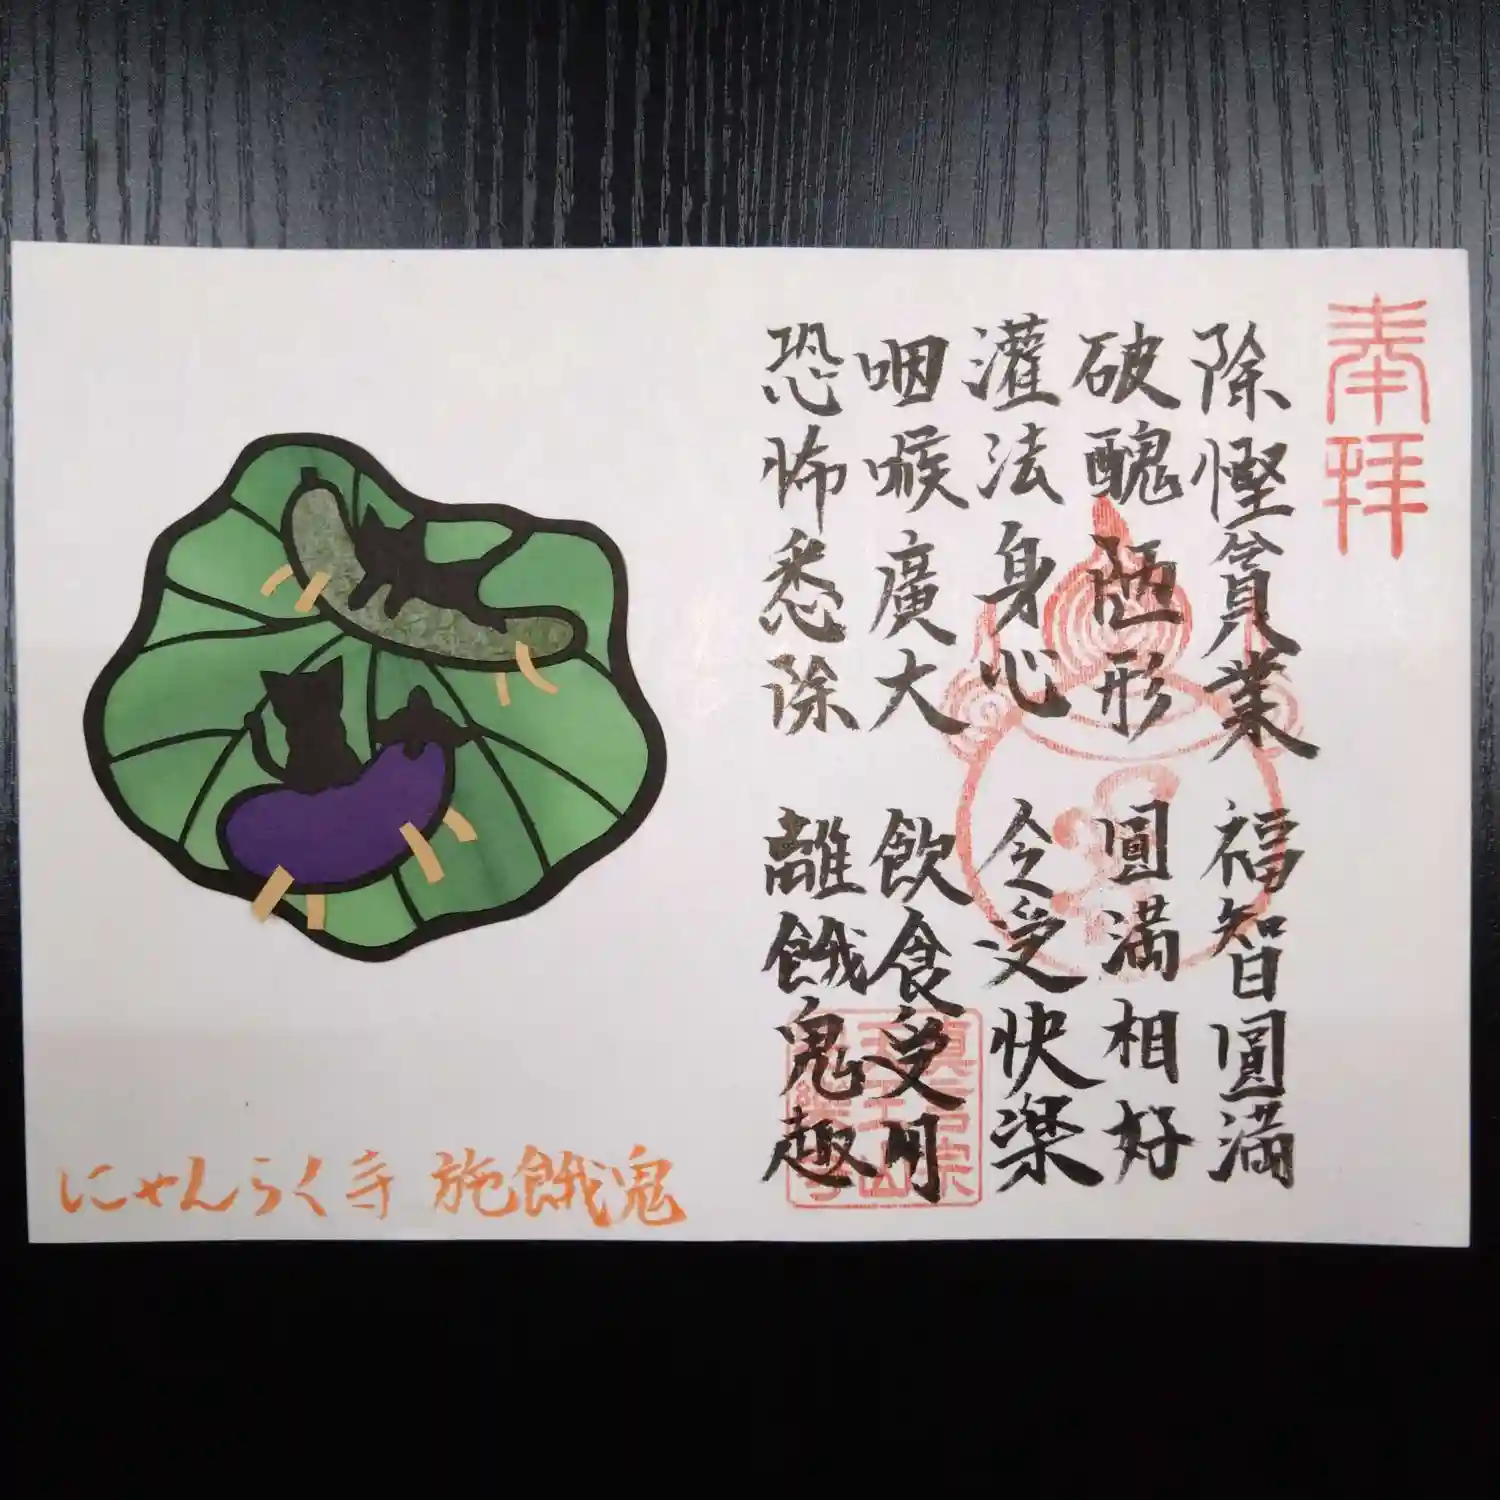 奉拝
除慳貪業 福智圓滿
破醜陋形 圓滿相好
灌法身心 令受快楽
咽喉廣大 飲食受用
恐怖悉除 離餓鬼趣
にゃんらく寺 施餓鬼